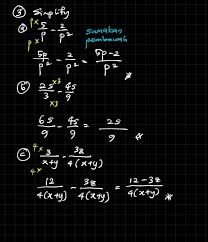 ③ Simplify
ⓐ p× 5/p - 2/p² samakan
p× pembawah
5p/p² - 2/p² = 5p-2/p²
ⓑ 2s/3 ×3 ×3 - 4s/9
6s/9 - 4s/9 = 2s/9
ⓒ 4× 3/x+y - 38/4(x+y)
4×
12/4(x+y) - 38/4(x+y) = 12-38/4(x+y)